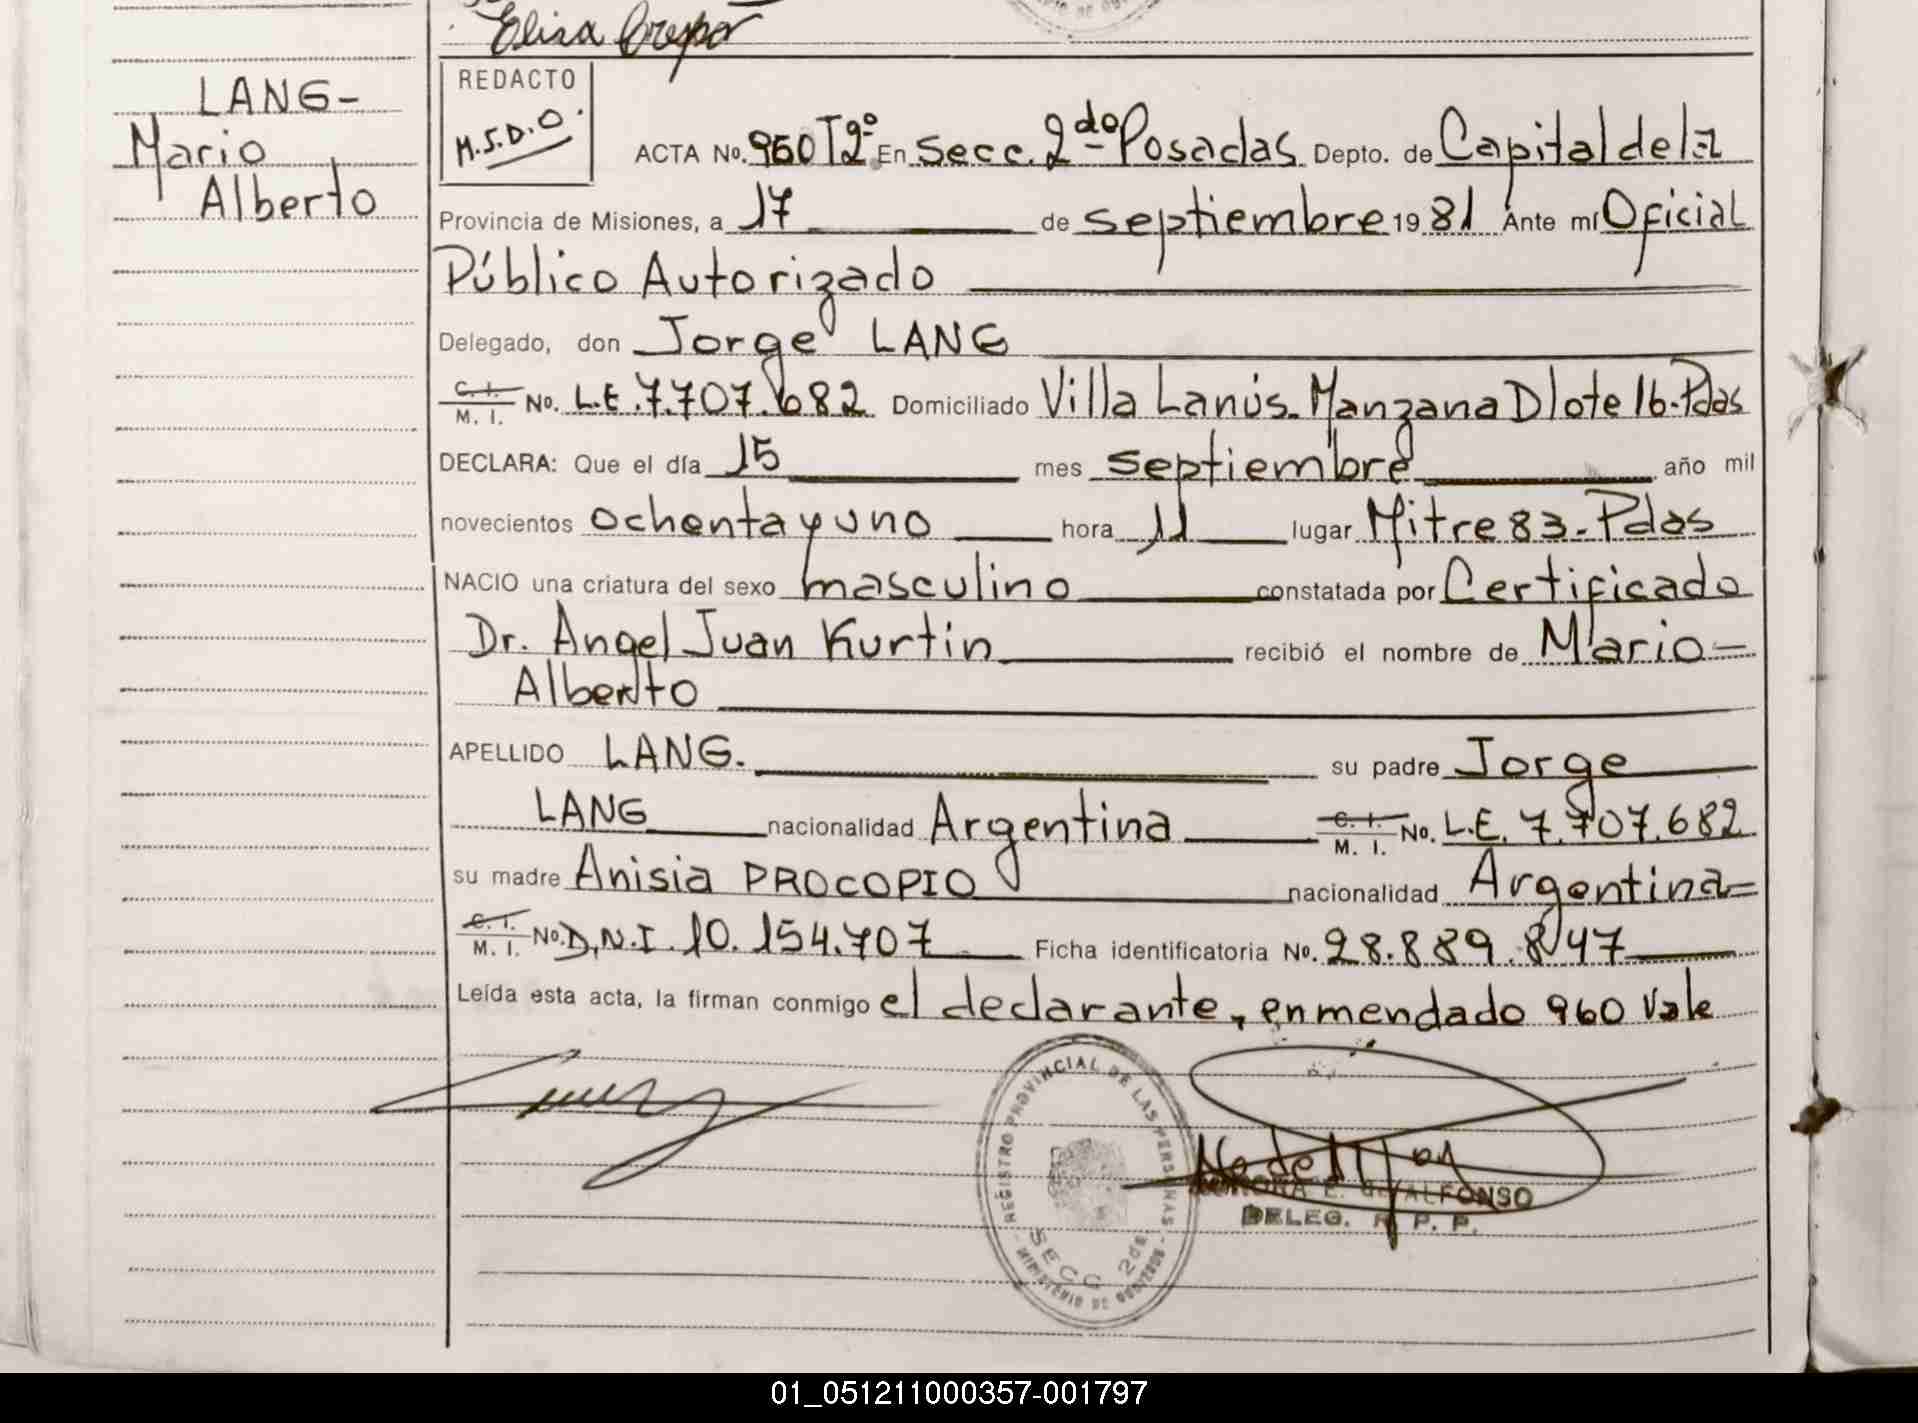 Elisa Crespo
LANG-
Mario
Alberto
REDACTO
M.S.D.O.
ACTA No. 960 T2º En Secc. 2da Posadas Depto. de Capital de la
Provincia de Misiones, a 17 de septiembre 1981 Ante mí Oficial
Público Autorizado
Delegado, don Jorge LANG
C. I.
M. I. No. L.E. 7.707.682 Domiciliado Villa Lanús. Manzana D lote 16-Pdas
DECLARA: Que el día 15 mes septiembre año mil
novecientos ochenta y uno hora 11 lugar Mitre 83-Pdas
NACIO una criatura del sexo masculino constatada por Certificado
Dr. Angel Juan Kurtin recibió el nombre de Mario-
Alberto
APELLIDO LANG. su padre Jorge
LANG nacionalidad Argentina C. I.
M. I. No. L.E. 7.707.682
su madre Anisia PROCOPIO nacionalidad Argentina=
C. I.
M. I. No. D.N.I. 10.154.707 Ficha identificatoria No. 28.889.847
Leída esta acta, la firman conmigo el declarante, enmendado 960 Vale
REGISTRO PROVINCIAL DE LAS PERSONAS
SECC 2da
MINISTERIO DE GOBIERNO
E. G. ALFONSO
DELEG. R. P. P.
01_051211000357-001797